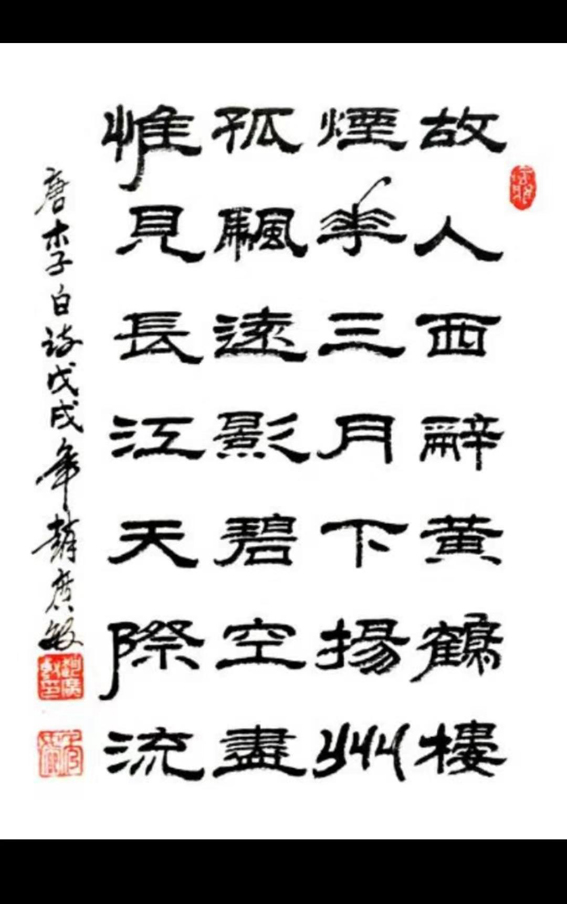 故人西辭黃鶴樓
煙華三月下揚州
孤颿遠影碧空盡
惟見長江天際流
唐李白詩戊戌年趙廣敏